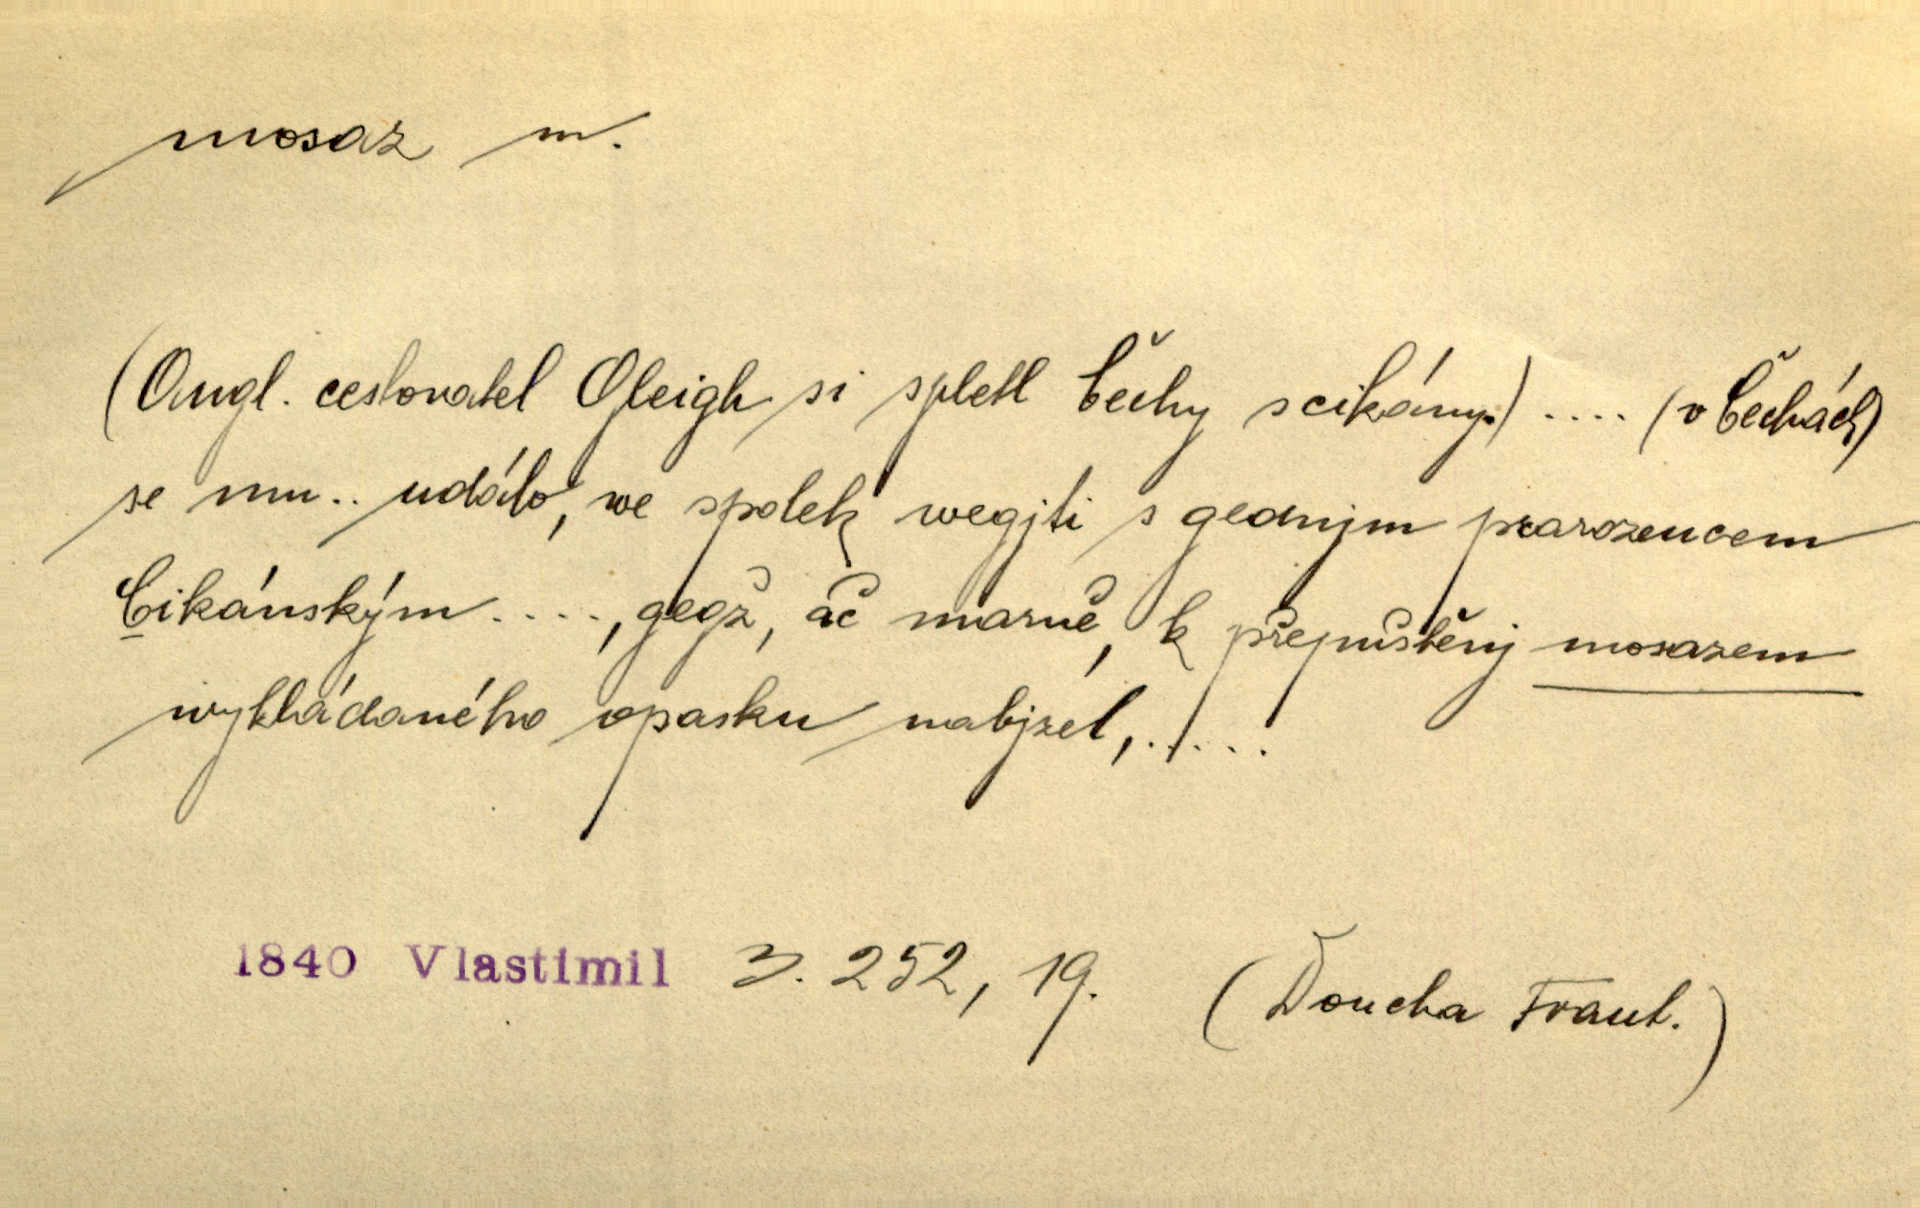 mosaz m.
(Angl. cestovatel Gleigh si spletl Čechy s cikány.) .... (v Čechách)
se mu .. událo, we spolek wegjti s gedným prarozencem
Cikánským ...., gegž, ač marně, k přepuštěnj mosazem
wykládaného opasku nabjzel, .....
1840 Vlastimil 3. 252, 19. (Doucha Frant.)